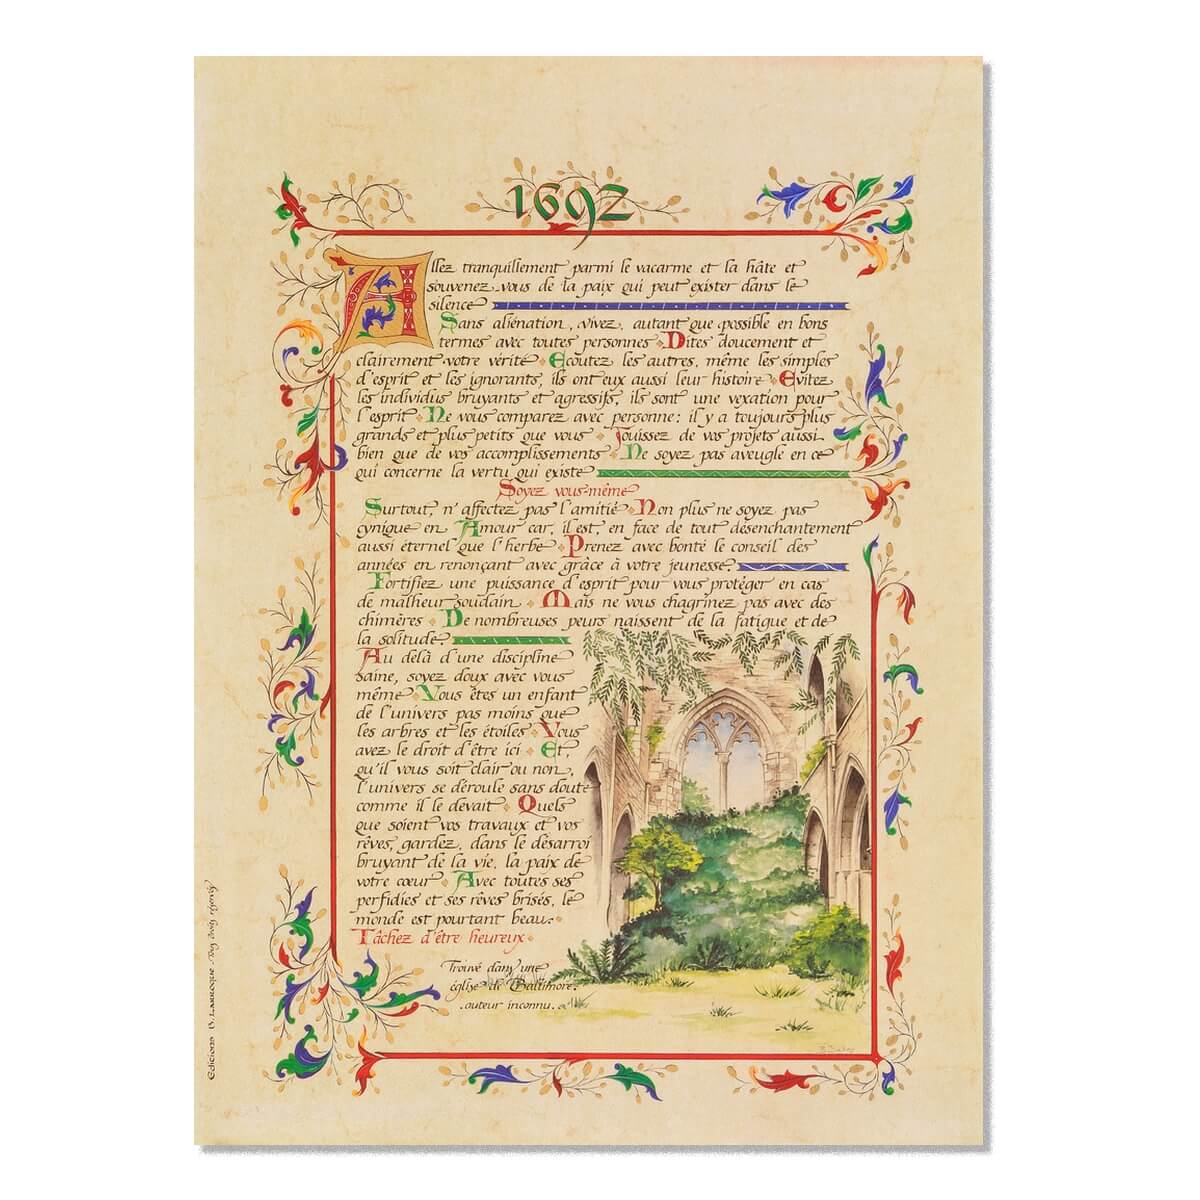 1692
Allez tranquillement parmi le vacarme et la hâte et
souvenez-vous de la paix qui peut exister dans le
silence
Sans aliénation, vivez, autant que possible en bons
termes avec toutes personnes Dites doucement et
clairement votre vérité Ecoutez les autres, même les simples
d'esprit et les ignorants, ils ont eux aussi leur histoire Evitez
les individus bruyants et agressifs, ils sont une vexation pour
l'esprit Ne vous comparez avec personne: il y a toujours plus
grands et plus petits que vous Jouissez de vos projets aussi
bien que de vos accomplissements Ne soyez pas aveugle en ce
qui concerne la vertu qui existe
Soyez vous-même
Surtout, n'affectez pas l'amitié Non plus ne soyez pas
cynique en Amour car, il est, en face de tout désenchantement
aussi éternel que l'herbe Prenez avec bonté le conseil des
années en renonçant avec grâce à votre jeunesse.
Fortifiez une puissance d'esprit pour vous protéger en cas
de malheur soudain Mais ne vous chagrinez pas avec des
chimères De nombreuses peurs naissent de la fatigue et de
la solitude
Au delà d'une discipline
saine, soyez doux avec vous
même Vous êtes un enfant
de l'univers pas moins que
les arbres et les étoiles Vous
avez le droit d'être ici Et,
qu'il vous soit clair ou non,
l'univers se déroule sans doute
comme il le devait Quels
que soient vos travaux et vos
rêves, gardez, dans le désarroi
bruyant de la vie, la paix de
votre cœur Avec toutes ses
perfidies et ses rêves brisés, le
monde est pourtant beau.
Tâchez d'être heureux
Trouvé dans une
église de Baltimore.
auteur inconnu.
Editions B. Larroque - Tous droits réservés